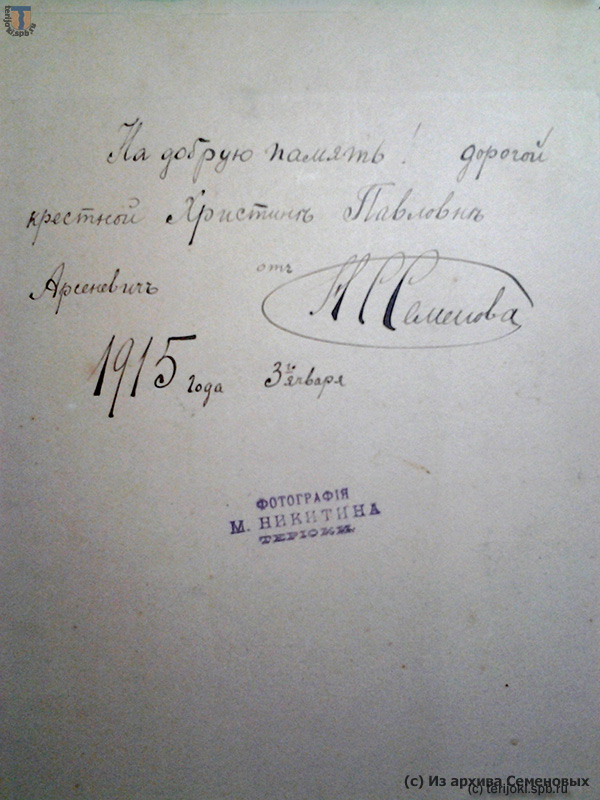 terijoki.spb.ru
На добрую память! дорогой
крестной Христинѣ Павловнѣ
Арсеневичъ отъ Н С Семенова
1915 года 3го января
ФОТОГРАФІЯ
М. НИКИТИНА
ТЕРІОКИ
(c) Из архива Семеновых
(c) terijoki.spb.ru